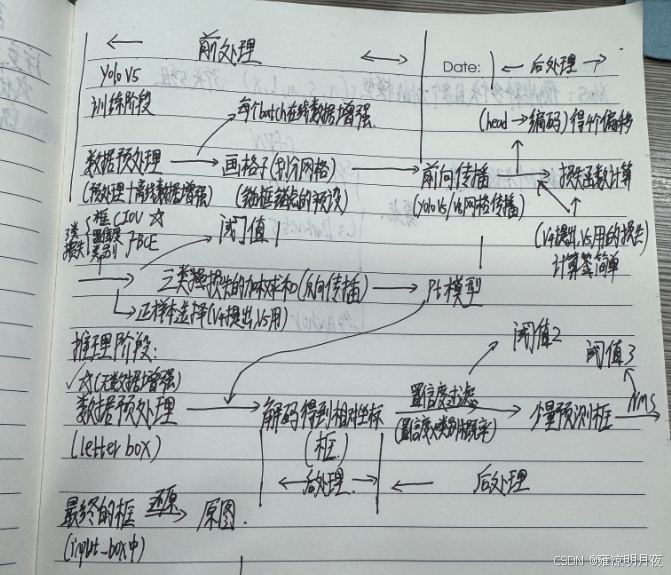 ← 前处理 ↔
Date: ← 后处理 →
Yolo V5
训练阶段
每个batch在线数据增强
(head → 编码) 得4个偏移
数据预处理 → 画格子(划分网格) → 前向传播 → 损失函数计算
(预处理+离线数据增强)
(锚框锚点的预设)
(Yolo V5/V8网络传播)
(V4提出,V5用的损失)
计算简单
3类损失
框 CIOU ☆
置信度
类别
BCE
阈值1
→ 三类损失的加权求和(反向传播) → Pt模型
正样本选择(V4提出,V5用)
推理阶段:
阈值2
阈值3
✓☆(无数据增强)
数据预处理 → 解码得到相对坐标 置信度过滤 → 少量预测框 NMS →
(letter box)
(框)
(置信度×类别概率)
← 后处理 →
← 后处理
最终的框 还原 → 原图.
(input_box中)
CSDN @雍凉明月夜